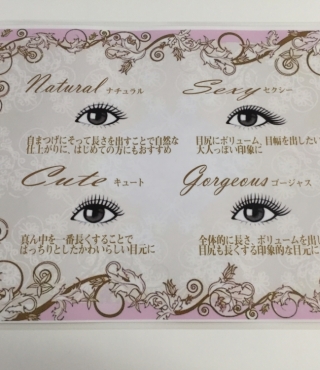 Natural ナチュラル
Sexy セクシー
自まつげにそって長さを出すことで自然な
仕上がりに、はじめての方にもおすすめ
目尻にボリューム、目幅を出したい
大人っぽい印象に
Cute キュート
Gorgeous ゴージャス
真ん中を一番長くすることで
ぱっちりとしたかわいらしい目元に
全体的に長さ、ボリュームを出し
目尻も長くする印象的な目元に